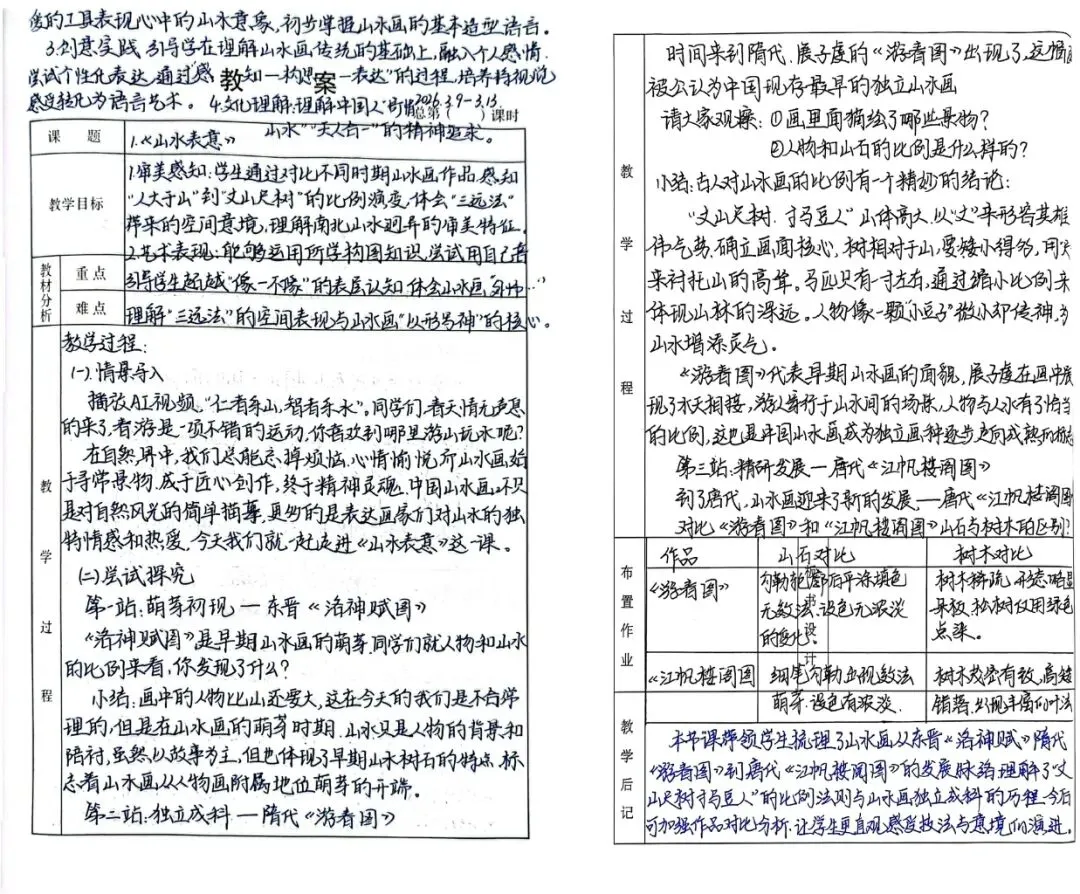 爱的工具表现心中的山水意象，初步掌握山水画的基本造型语言。
3.创意实践：引导学在理解山水画传统的基础上，融入个人感情，
尝试个性化表达，通过"感知—构思—表达"的过程，培养将视觉
感受转化为语言艺术。4.文化理解：理解中国人"可情
山水""天人合一"的精神追求。
教 案
2026.3.9—3.13
总第（ ）课时
课 题
1.《山水表意》
教学目标
1.审美感知：学生通过对比不同时期山水画作品，感知
"人大于山"到"丈山尺树"的比例演变，体会"三远法"
带来的空间意境，理解南北山水迥异的审美特征。
2.艺术表现：能够运用所学构图知识，尝试用自己喜
教材分析
重 点
引导学生超越"像一不像"的表层认知，体会山水画
难 点
理解"三远法"的空间表现与山水画"以形写神"的核心。
教学过程
教学过程：
(一).情景导入
播放AI视频，"仁者乐山，智者乐水"。同学们，春天悄无声息
的来了，春游是一项不错的运动，你喜欢到哪里游山玩水呢？
在自然界中，我们总能忘掉烦恼，心情愉悦，而山水画，始
于寻常景物，成于匠心创作，终于精神灵魂。中国山水画，不只
是对自然风光的简单描摹，更多的是表达画家们对山水的独
特情感和热爱，今天我们就一起走进《山水表意》这一课。
(二)尝试探究
第一站：萌芽初现 — 东晋《洛神赋图》
《洛神赋图》是早期山水画的萌芽，同学们就人物和山水
的比例来看，你发现了什么？
小结：画中的人物比山还要大，这在今天的我们是不合常
理的，但是在山水画的萌芽时期，山水只是人物的背景和
陪衬，虽然以故事为主，但也体现了早期山水树石的特点，标
志着山水画从人物画附属地位萌芽的开端。
第二站：独立成科 — 隋代《游春图》
教学过程
时间来到隋代，展子虔的《游春图》出现了，这幅画
被公认为中国现存最早的独立山水画
请大家观察：①画里面描绘了哪些景物？
②人物和山石的比例是什么样的？
小结：古人对山水画的比例有一个精妙的结论：
"丈山尺树，寸马豆人"山体高大，以"丈"来形容其雄
伟气势，确立画面核心，树相对于山，要矮小得多，用"尺
来衬托山的高耸。马匹只有一寸左右，通过缩小比例来
体现山林的深远。人物像一颗"小豆子"微小却传神，为
山水增添灵气。
《游春图》代表早期山水画的面貌，展子虔在画中展
现了水天相接，游人穿行于山水间的场景，人物与山水有了恰当
的比例，这也是中国山水画成为独立画种逐步走向成熟的
第三站：精研发展 — 唐代《江帆楼阁图》
到了唐代，山水画迎来了新的发展，— 唐代《江帆楼阁图
对比《游春图》和《江帆楼阁图》山石与树木的区别？
布置作业
作品 山石对比 树木对比
《游春图》 勾勒轮廓后平涂填色 树木稀疏，形态略显
无皴法，设色无浓淡 呆板，松树仅用绿色
的变化。 点染。
板书设计
《江帆楼阁图 细笔勾勒出现皴法 树木茂密有致，高矮
萌芽，设色有浓淡. 错落，出现丰富的叶法
教学后记
本节课带领学生梳理了山水画从东晋《洛神赋》隋代
《游春图》到唐代《江帆楼阁图》的发展脉络，理解了"丈
山尺树寸马豆人"的比例法则与山水画独立成科的历程，今后
可加强作品对比分析，让学生更直观感受技法与意境的演进。